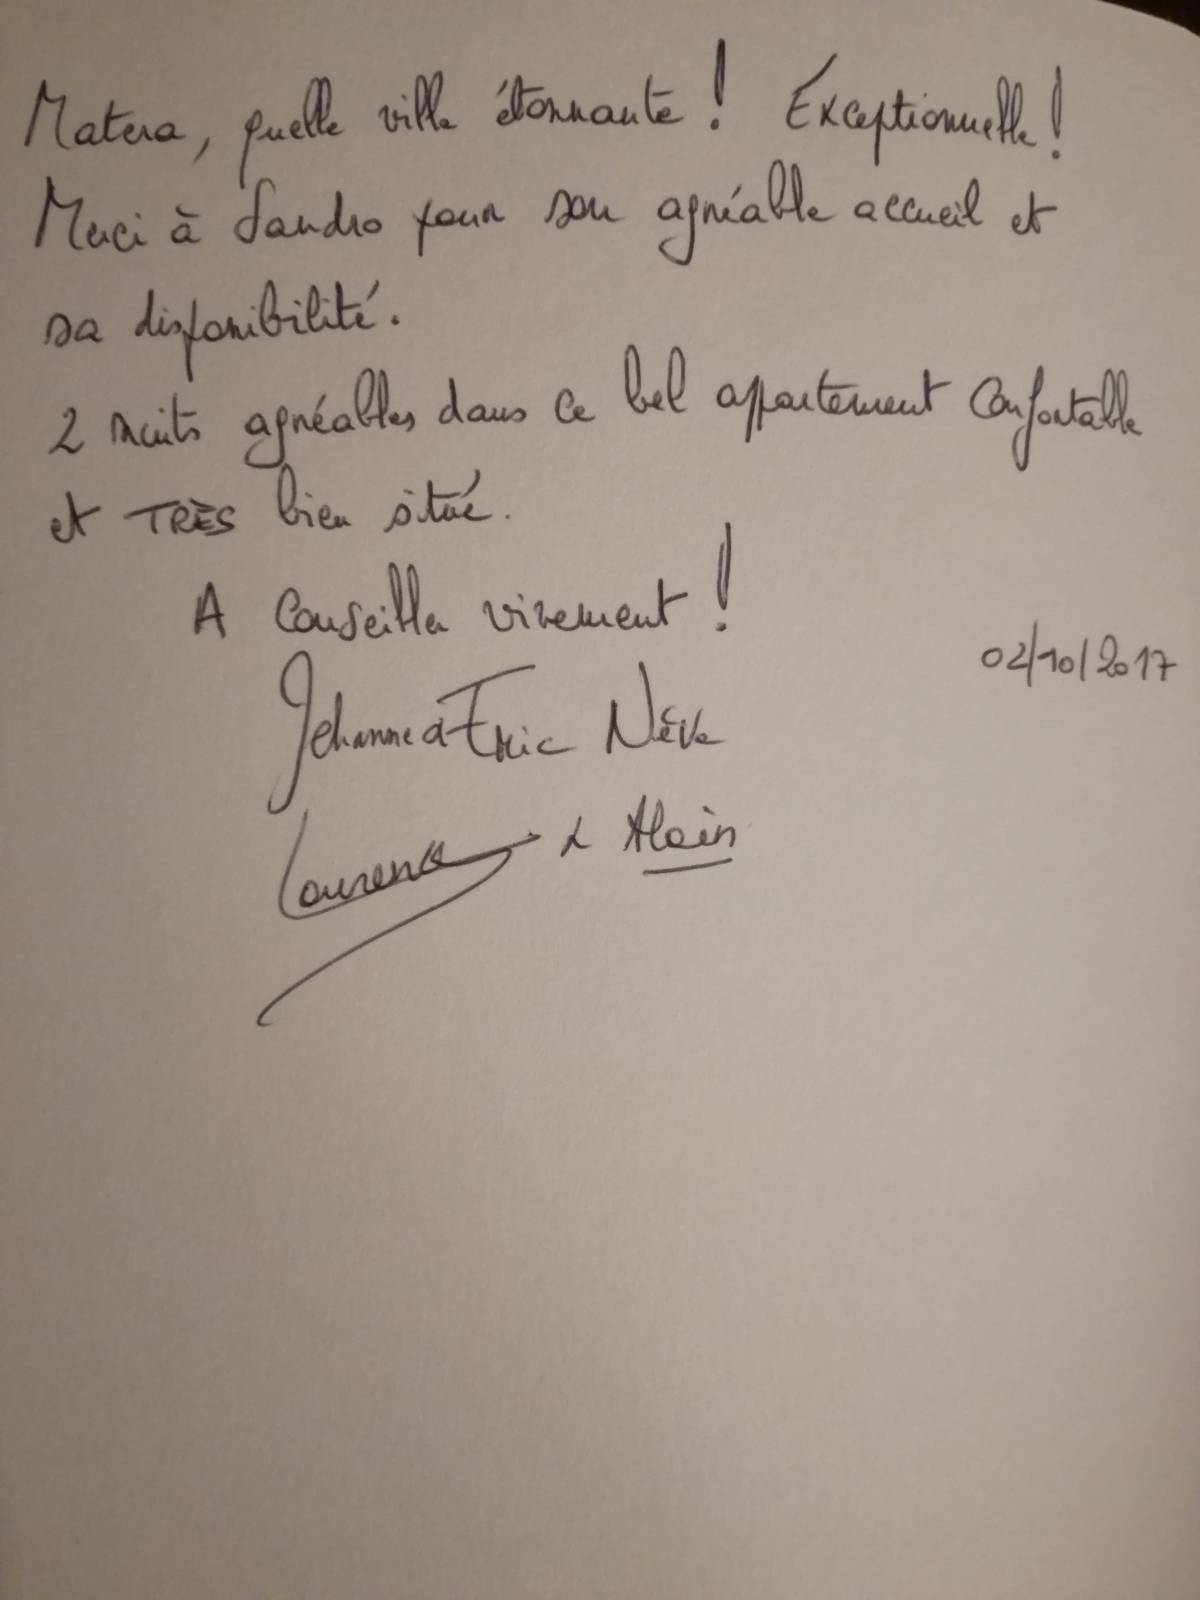 Matera, quelle ville étonnante ! Exceptionnelle !
Merci à Sandro pour son agréable accueil et
sa disponibilité.
2 nuits agréables dans ce bel appartement confortable
et TRÈS bien situé.
A conseiller vivement !
02/10/2017
Jehanne & Eric Nève
Laurence & Alain